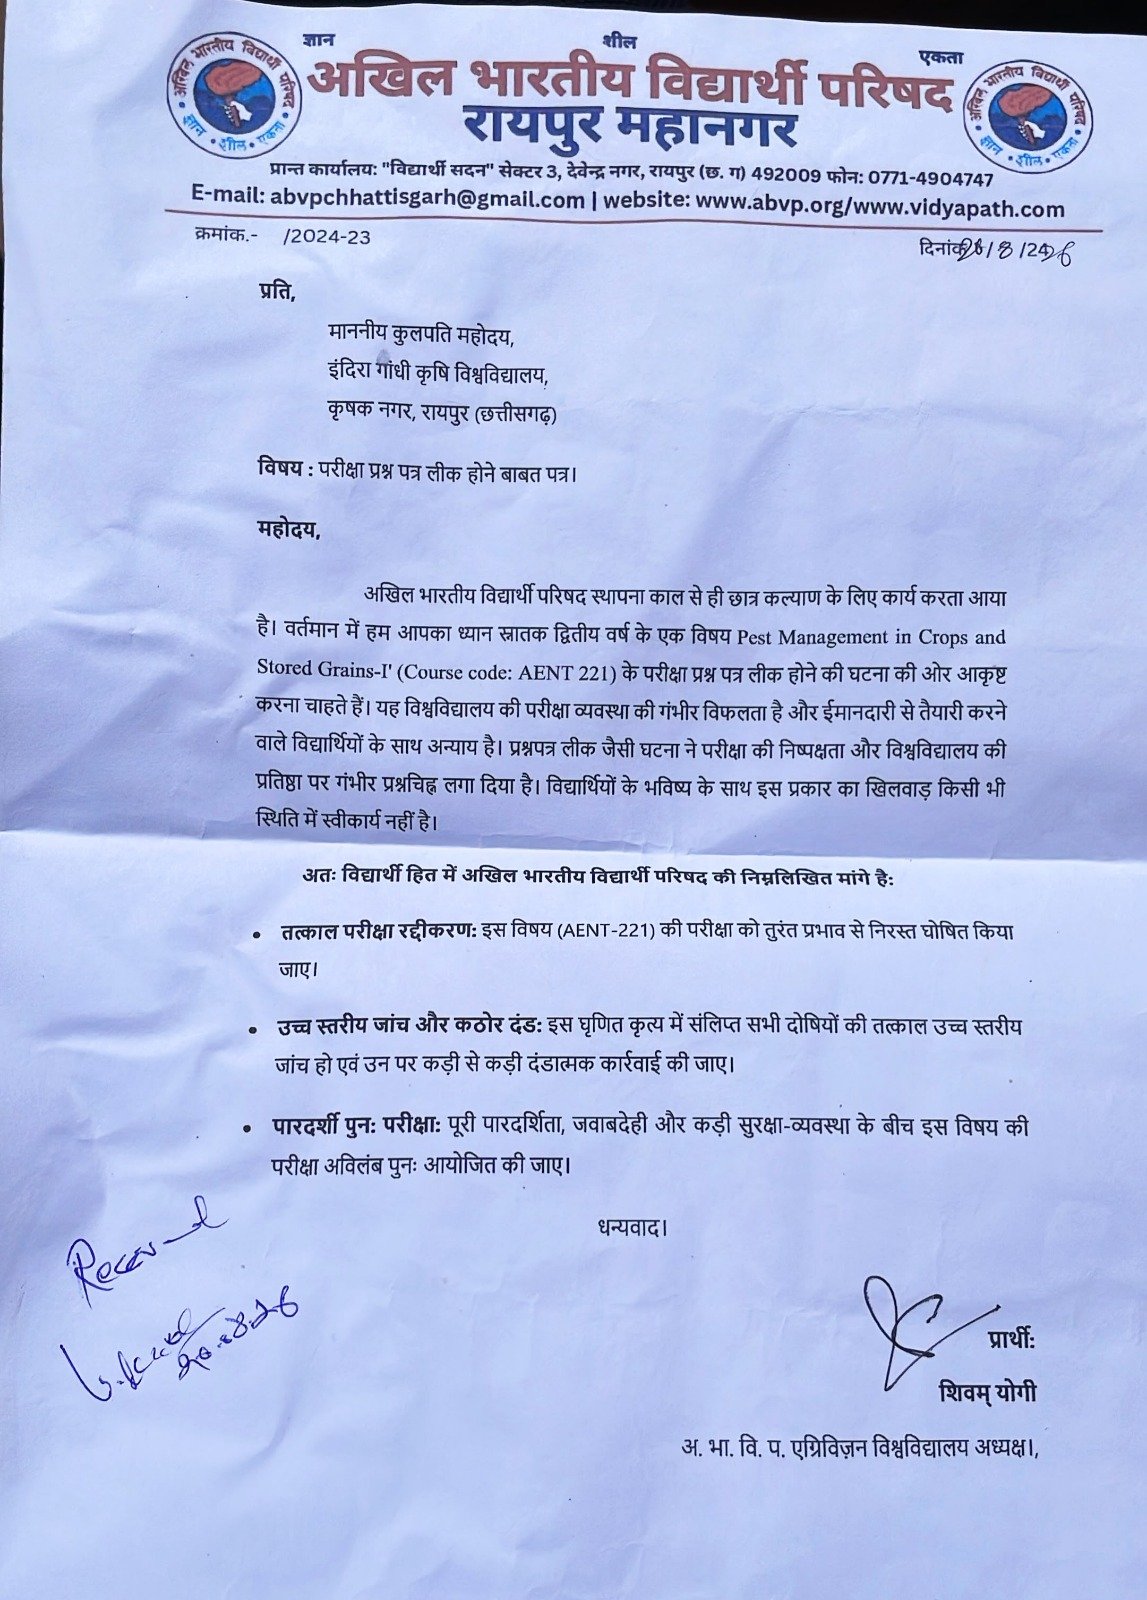 ज्ञान शील एकता
अखिल भारतीय विद्यार्थी परिषद
रायपुर महानगर
प्रान्त कार्यालय: "विद्यार्थी सदन" सेक्टर 3, देवेन्द्र नगर, रायपुर (छ. ग) 492009 फोन: 0771-4904747
E-mail: abvpchhattisgarh@gmail.com | website: www.abvp.org/www.vidyapath.com
क्रमांक.- /2024-23
दिनांक /8/2426
प्रति,
माननीय कुलपति महोदय,
इंदिरा गांधी कृषि विश्वविद्यालय,
कृषक नगर, रायपुर (छत्तीसगढ़)
विषय : परीक्षा प्रश्न पत्र लीक होने बाबत पत्र।
महोदय,
अखिल भारतीय विद्यार्थी परिषद स्थापना काल से ही छात्र कल्याण के लिए कार्य करता आया
है। वर्तमान में हम आपका ध्यान स्नातक द्वितीय वर्ष के एक विषय Pest Management in Crops and
Stored Grains-I' (Course code: AENT 221) के परीक्षा प्रश्न पत्र लीक होने की घटना की ओर आकृष्ट
करना चाहते हैं। यह विश्वविद्यालय की परीक्षा व्यवस्था की गंभीर विफलता है और ईमानदारी से तैयारी करने
वाले विद्यार्थियों के साथ अन्याय है। प्रश्नपत्र लीक जैसी घटना ने परीक्षा की निष्पक्षता और विश्वविद्यालय की
प्रतिष्ठा पर गंभीर प्रश्नचिह्न लगा दिया है। विद्यार्थियों के भविष्य के साथ इस प्रकार का खिलवाड़ किसी भी
स्थिति में स्वीकार्य नहीं है।
अतः विद्यार्थी हित में अखिल भारतीय विद्यार्थी परिषद की निम्नलिखित मांगे है:
• तत्काल परीक्षा रद्दीकरण: इस विषय (AENT-221) की परीक्षा को तुरंत प्रभाव से निरस्त घोषित किया
जाए।
• उच्च स्तरीय जांच और कठोर दंड: इस घृणित कृत्य में संलिप्त सभी दोषियों की तत्काल उच्च स्तरीय
जांच हो एवं उन पर कड़ी से कड़ी दंडात्मक कार्रवाई की जाए।
• पारदर्शी पुन: परीक्षा: पूरी पारदर्शिता, जवाबदेही और कड़ी सुरक्षा-व्यवस्था के बीच इस विषय की
परीक्षा अविलंब पुनः आयोजित की जाए।
धन्यवाद।
Received
प्रार्थी:
शिवम् योगी
अ. भा. वि. प. एग्रिविज़न विश्वविद्यालय अध्यक्ष।,